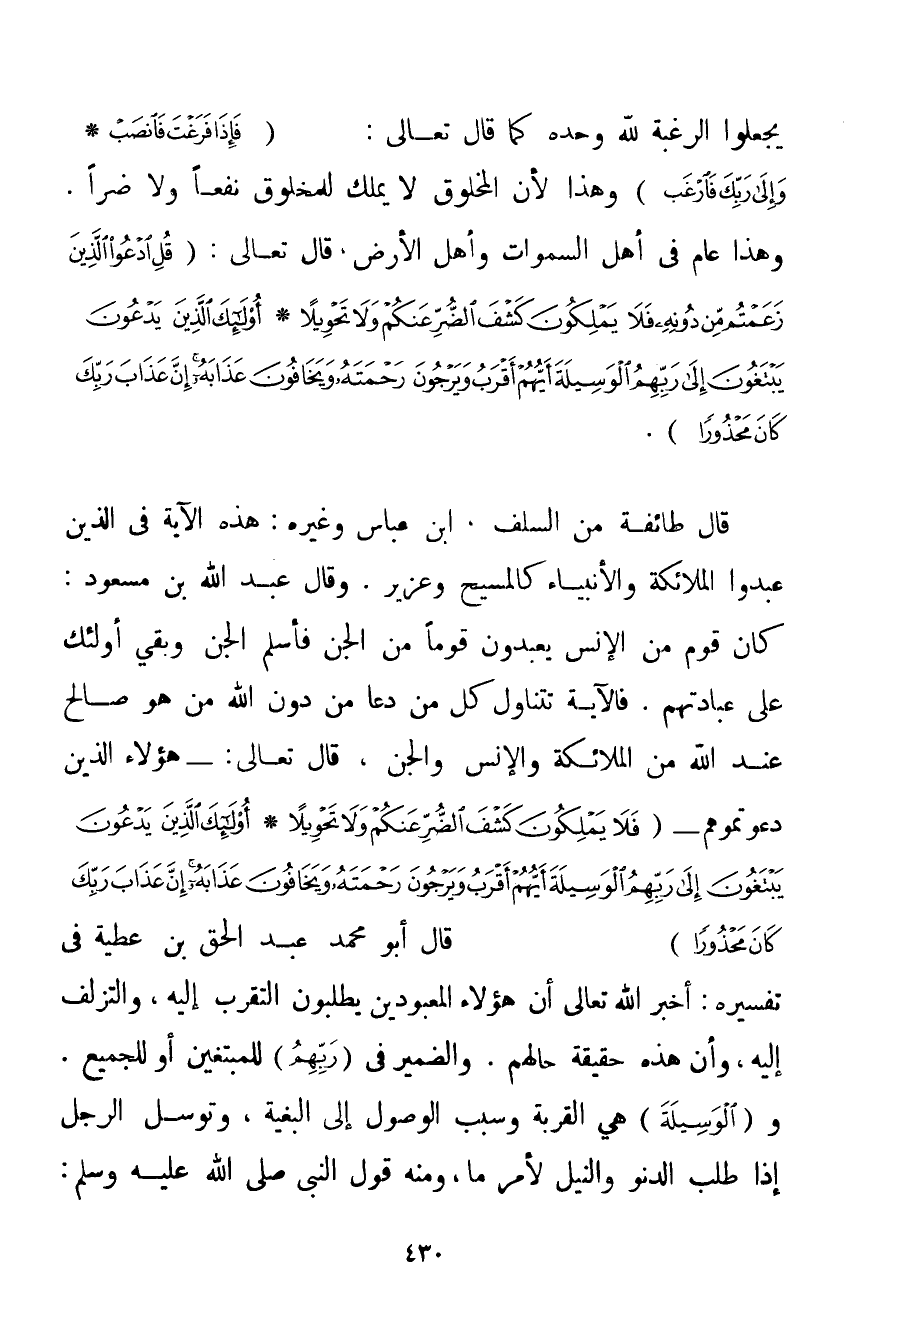 يجعلوا الرغبة لله وحده كما قال تعـالى : ( فَإِذَا فَرَغْتَ فَٱنصَبْ *
وَإِلَىٰ رَبِّكَ فَٱرْغَب ) وهذا لأن المخلوق لا يملك للمخلوق نفعـاً ولا ضراً .
وهذا عام فى أهل السموات وأهل الأرض . قال تعـالى : ( قُلِ ٱدْعُوا۟ ٱلَّذِينَ
زَعَمْتُم مِّن دُونِهِۦ فَلَا يَمْلِكُونَ كَشْفَ ٱلضُّرِّ عَنكُمْ وَلَا تَحْوِيلًا * أُو۟لَٰٓئِكَ ٱلَّذِينَ يَدْعُونَ
يَبْتَغُونَ إِلَىٰ رَبِّهِمُ ٱلْوَسِيلَةَ أَيُّهُمْ أَقْرَبُ وَيَرْجُونَ رَحْمَتَهُۥ وَيَخَافُونَ عَذَابَهُۥٓ ۚ إِنَّ عَذَابَ رَبِّكَ
كَانَ مَحْذُورًا ) .
قال طائفـة من السلف . ابن عباس وغيره : هذه الآية فى الذين
عبدوا الملائكة والأنبيـاء كالمسيح وعزير . وقال عبـد الله بن مسعود :
كان قوم من الإنس يعبدون قوماً من الجن فأسلم الجن وبقي أولئك
على عبادتهم . فالآيـة تتناول كل من دعا من دون الله من هو صـالح
عنـد الله من الملائـكة والإنس والجن ، قال تعـالى : ــ هؤلاء الذين
دعوتموهم ــ ( فَلَا يَمْلِكُونَ كَشْفَ ٱلضُّرِّ عَنكُمْ وَلَا تَحْوِيلًا * أُو۟لَٰٓئِكَ ٱلَّذِينَ يَدْعُونَ
يَبْتَغُونَ إِلَىٰ رَبِّهِمُ ٱلْوَسِيلَةَ أَيُّهُمْ أَقْرَبُ وَيَرْجُونَ رَحْمَتَهُۥ وَيَخَافُونَ عَذَابَهُۥٓ ۚ إِنَّ عَذَابَ رَبِّكَ
كَانَ مَحْذُورًا ) قال أبو محمد عبـد الحق بن عطية فى
تفسيره : أخبر الله تعالى أن هؤلاء المعبودين يطلبون التقرب إليه ، والتزلف
إليه ، وأن هذه حقيقة حالهم . والضمير فى ( رَبِّهِمُ ) للمبتغين أو للجميع .
و ( ٱلْوَسِيلَةَ ) هي القربة وسبب الوصول إلى البغية ، وتوسـل الرجل
إذا طلب الدنو والنيل لأمر ما ، ومنه قول النبى صلى الله عليـه وسلم :
٤٣٠